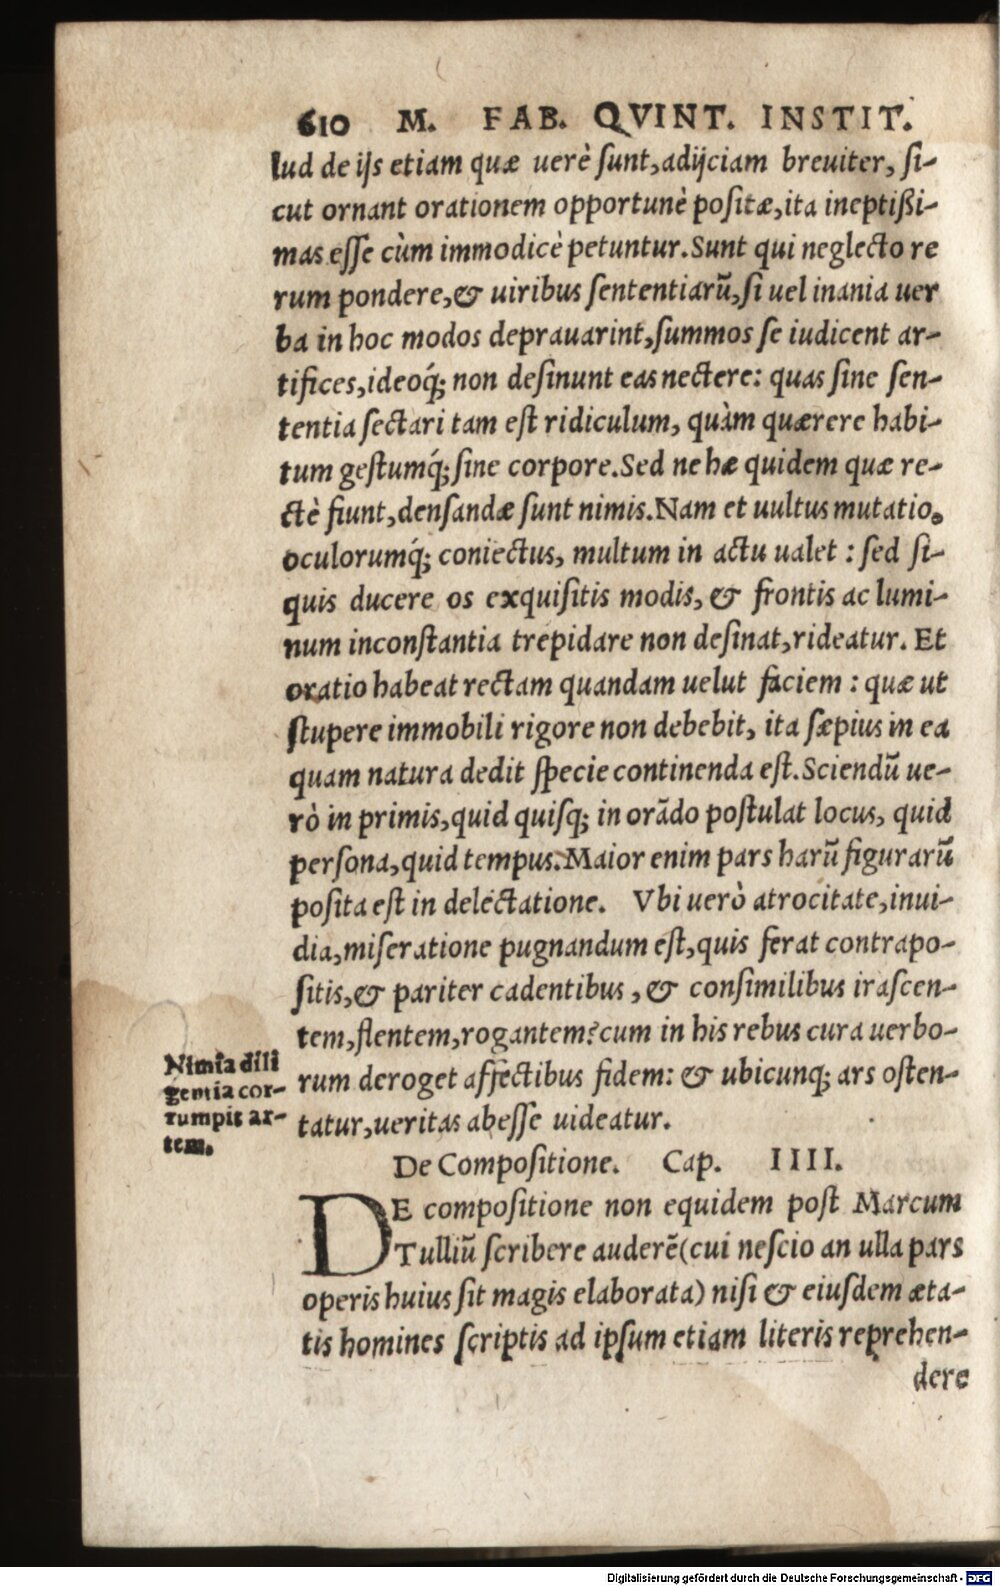 610 M. FAB. QVINT. INSTIT.
lud de ijs etiam quæ uerè sunt, adijciam breuiter, si-
cut ornant orationem opportunè positæ, ita ineptißi-
mas esse cùm immodicè petuntur. Sunt qui neglecto re
rum pondere, & uiribus sententiarũ, si uel inania uer
ba in hoc modos deprauarint, summos se iudicent ar-
tifices, ideoq́; non desinunt eas nectere: quas sine sen-
tentia sectari tam est ridiculum, quàm quærere habi-
tum gestumq́; sine corpore. Sed ne hæ quidem quæ re-
ctè fiunt, densandæ sunt nimis. Nam et uultus mutatio,
oculorumq́; coniectus, multum in actu ualet : sed si-
quis ducere os exquisitis modis, & frontis ac lumi-
num inconstantia trepidare non desinat, rideatur. Et
oratio habeat rectam quandam uelut faciem : quæ ut
stupere immobili rigore non debebit, ita sæpius in ea
quam natura dedit specie continenda est. Sciendũ ue-
rò in primis, quid quisq; in orãdo postulat locus, quid
persona, quid tempus. Maior enim pars harũ figurarũ
posita est in delectatione. Vbi uerò atrocitate, inui-
dia, miseratione pugnandum est, quis ferat contrapo-
sitis, & pariter cadentibus, & consimilibus irascen-
tem, flentem, rogantem? cum in his rebus cura uerbo-
rum deroget affectibus fidem: & ubicunq; ars osten-
tatur, ueritas abesse uideatur.
Nimia dili
gentia cor-
rumpit ar-
tem.
De Compositione. Cap. IIII.
DE compositione non equidem post Marcum
Tulliũ scribere auderẽ (cui nescio an ulla pars
operis huius sit magis elaborata) nisi & eiusdem æta-
tis homines scriptis ad ipsum etiam literis reprehen-
dere
Digitalisierung gefördert durch die Deutsche Forschungsgemeinschaft - DFG